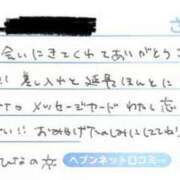 さ
会いにきてくれてありがとう
差し入れと延長ほんとに
メッセージカードわたし恋
い!! おみやげたのしみにしててね!
ひなの
ヘブンネット口コミ